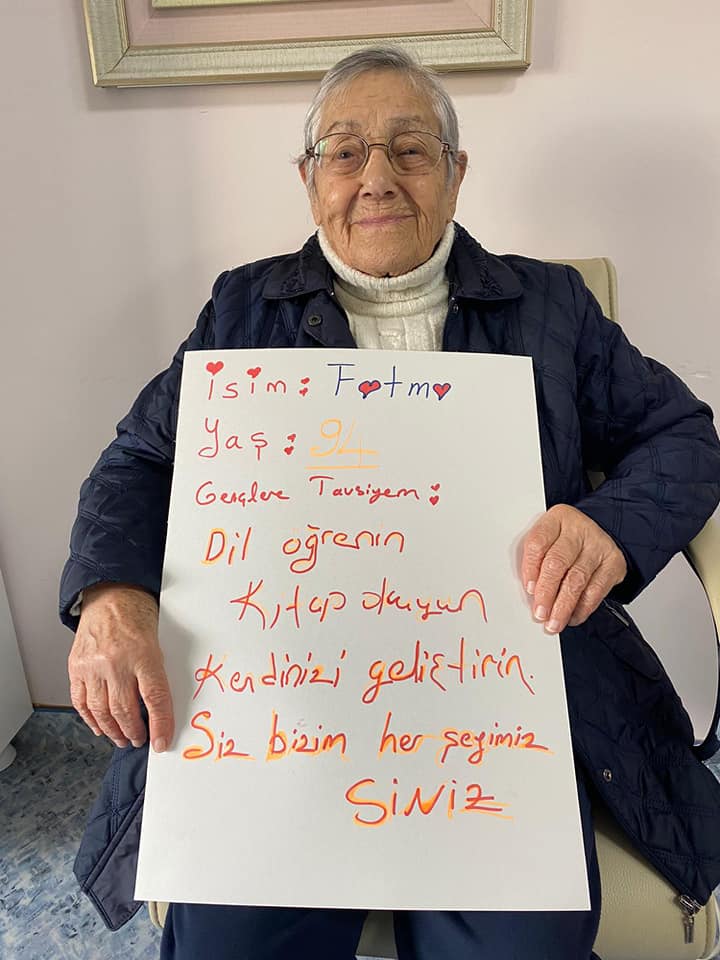 İsim: Fatma
Yaş: 94
Gençlere Tavsiyem:
Dil öğrenin
Kitap okuyun
Kendinizi geliştirin.
Siz bizim her şeyimiz
SiNiz